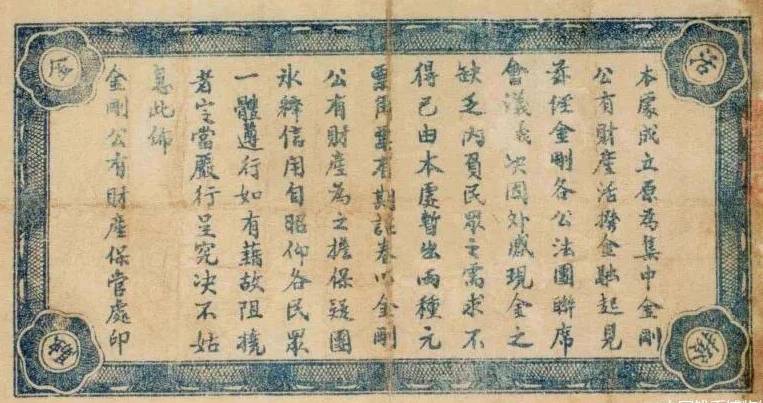 活
撥
金
融
本處成立原為集中金剛
公有財產活撥金融起見
茲經金剛各公法團聯席
會議議決因外感現金之
缺乏內負民眾之需求不
得已由本處暫出兩種元
票角票有期証券以金剛
公有財產為之擔保疑團
氷釋信用自昭仰各民眾
一體遵行如有藉故阻撓
者定當嚴行呈究決不姑
息此佈
金剛公有財產保管處印